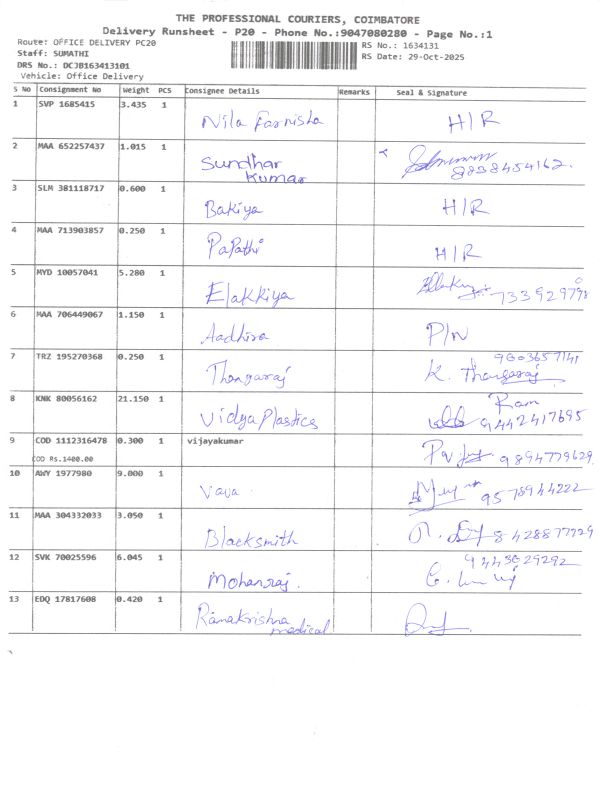 THE PROFESSIONAL COURIERS, COIMBATORE
Delivery Runsheet - P20 - Phone No.:9047080280 - Page No.:1
Route: OFFICE DELIVERY PC20
RS No.: 1634131
Staff: SUMATHI
RS Date: 29-Oct-2025
DRS No.: DCJB163413101
Vehicle: Office Delivery
S No Consignment No Weight PCS Consignee Details Remarks Seal & Signature
1 SVP 1685415 3.435 1 Nila Farnisha H/R
2 MAA 652257437 1.015 1 Sundhar
Kumar 9858454162
3 SLM 381118717 0.600 1 Bakiya H/R
4 MAA 713903857 0.250 1 Papathi H/R
5 MYD 10057041 5.280 1 Elakkiya
6 MAA 706449067 1.150 1 Aadhira P/N
7 TRZ 195270368 0.250 1 Thangaraj 9003657141
K. Thangaraj
8 KNK 80056162 21.150 1 Vidya Plastics Ram
9442417695
9 COD 1112316478 0.300 1 vijayakumar 9894779629
COD Rs.1400.00
10 AWY 1977980 9.000 1 Vava 9578944222
11 MAA 304332033 3.050 1 Blacksmith 8428877729
12 SVK 70025596 6.045 1 Mohanraj 9443029292
13 EDQ 17817608 0.420 1 Ramakrishna
medical